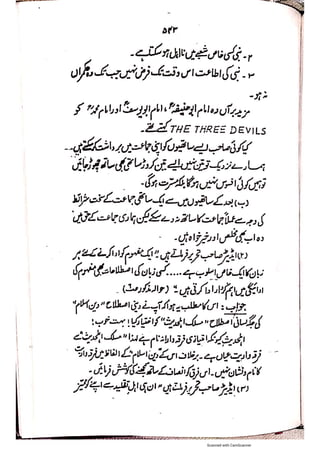 ۵۴۳
۲ - نبی کسی خاص شعبے میں نا اہل ہو سکتا ہے۔
۳ - نبی کی اطاعت اس وقت تک فرض نہیں جب تک وہ حکمراں
نہ ہو۔
مزید برآں وہ امام ابو حنیفہؒ، امام ابو یوسفؒ اور امام محمدؒ کو
THE THREE DEVILS کہتے تھے۔
کیا کوئی صاحب ایسے ساتھیوں کو اپنی جماعت میں برداشت کر سکتے ہیں۔
ہمارے نزدیک تو تین نہیں ایسے تین کروڑ ساتھی بھی ساتھ چھوڑ جائیں
تو ہمیں کوئی افسوس نہیں ہو گا بلکہ مسرت ہو گی۔
(ب) بعد کے ساتھیوں میں سے ایک ساتھی جماعت کے سخت شرائط
کی وجہ سے عملاً جماعت کا ساتھ نہ دے سکے لیکن ہماری جماعت کے حق میں
وہ اب بھی مخلص اور خیر خواہ ہیں۔
(۲) ایڈیٹر صاحب تحریر فرماتے ہیں "ایک مفہوم کو ادا کرنے کے لئے ہر
زبان کا ایک خاص اسلوب ہے ..... کسی زبان کی اصطلاحات بھی مفہوم کی
ادائیگی میں اہم کردار ادا کرتی ہیں۔" (حوالہ مذکور)
جواب : اس کا مطلب یہ ہوا کہ آپ نے دینی اصطلاح "دین اسلام"
کی جگہ لسانی اصطلاح "مسلک اہلحدیث" کو اختیار کر لیا! بہت خوب!
اہلحدیث چونکہ امتیازی فرقہ وارانہ نام ہے لہذا "مسلک اہلحدیث" سے
فرقہ واریت عیاں ہے۔ برخلاف اس کے دین اسلام کے الفاظ میں فرقہ واریت
کا نام و نشان نہیں۔ اس فرق کو انصاف کے ساتھ سمجھنے کی کوشش فرمائیں۔
(۳) ایڈیٹر صاحب تحریر فرماتے ہیں "ان ہی اہل تقلید سے اپنے کو
Scanned with CamScanner